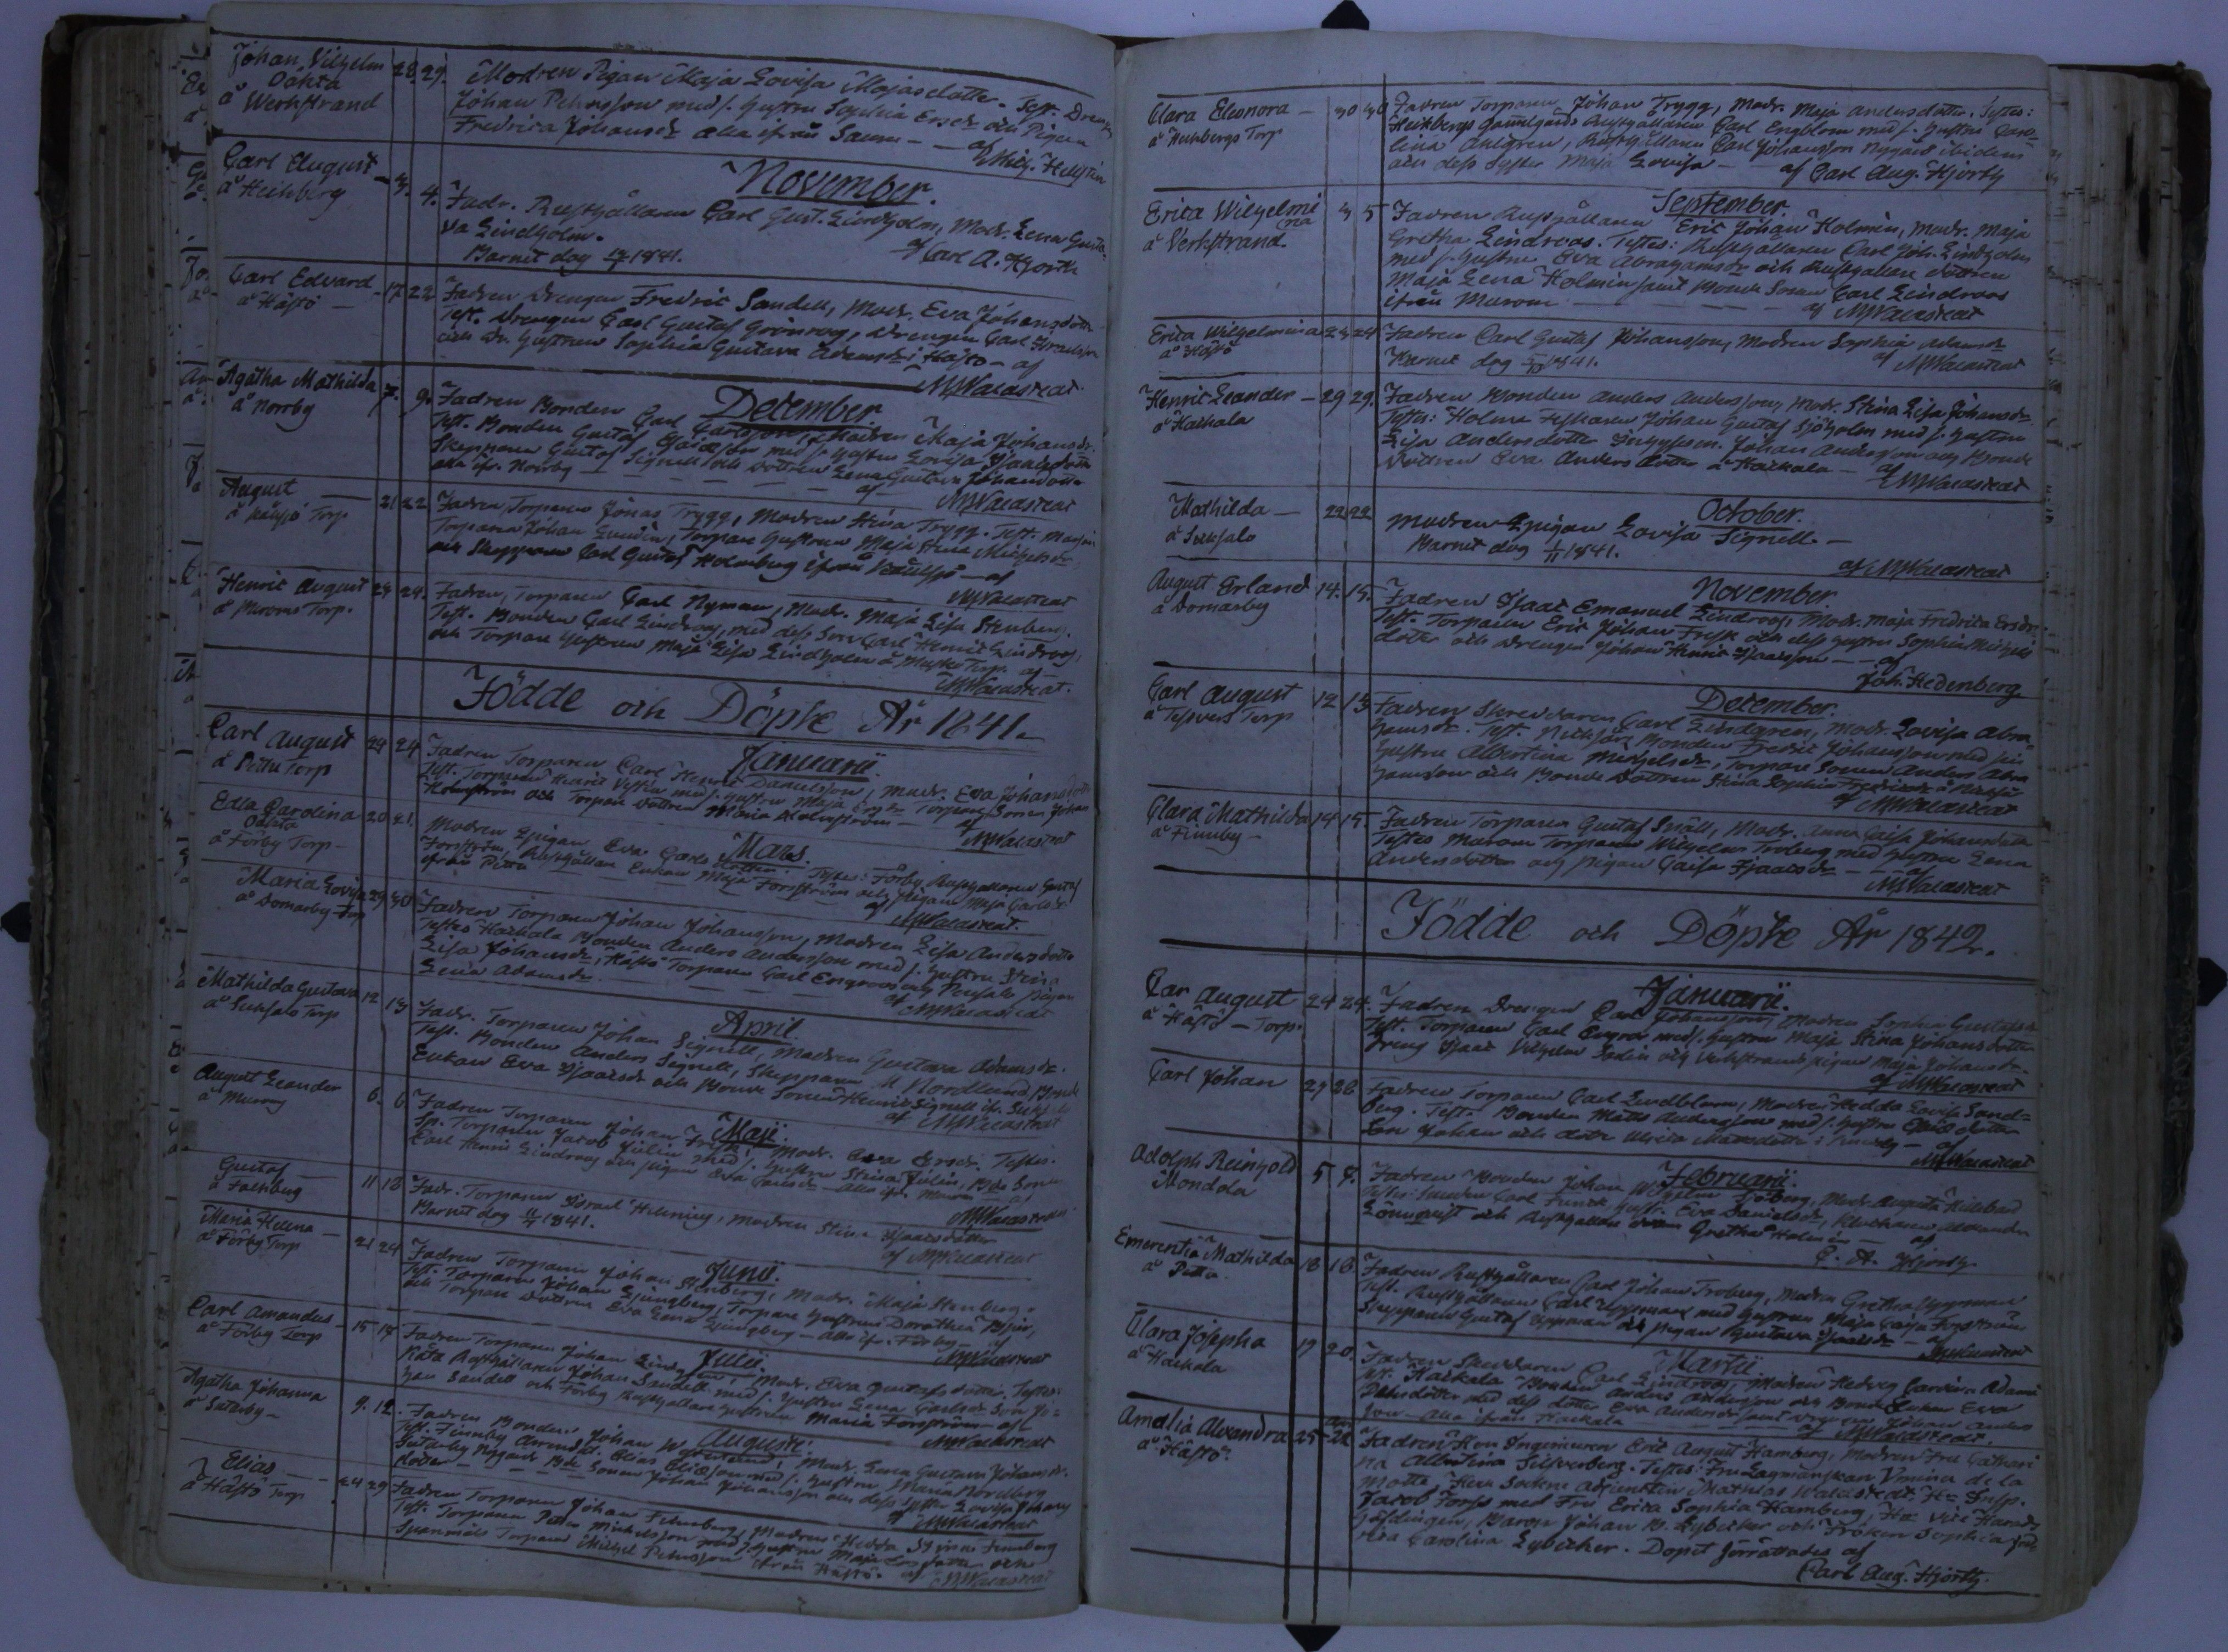 Johan Vilhelm 28. 29. Modren Pigan Maja Lovisa Majasdotter. Test. Drengen
Oäkta Johan Pehrsson med s. hustru Sophia Ersdr och Pigan
å Werkstrand Fredrica Johansdr alla ifrån Samma — af
November.
Carl August — 3. 4. Fadr. Rusthållaren Carl Gust. Lindholm, Modr. Lena Gusta-
å Heikberg va Lindholm. af Carl A. Hjorth
Barnet dog 1841.
Carl Edvard 17 22 Fadren Drengen Fredric Sandell, Modr. Eva Johansdotter
å Håstö — Test. Drengen Carl Gustaf Grönroos, Drengen Carl Israelsson
och Dr. hustrun Sophia Gustava Adamsdr i Håstö — af
M Walastedt.
December
Agatha Mathilda 7. 9. Fadren Bonden Carl Carlsson, Modren Maja Johansdr.
å Norrby Test. Bonden Gustaf med s. hustru Lovisa Isaaksdotter
Skepparen Gustaf Signell och dottren Lena Gustava Johansdotter
alla ifr. Norrby — af
M Walastedt
August 21 22 Fadren, Torparen Jonas Trygg, Modren Stina Trygg. Test.
Torp Torparen Johan Lundin, Torpare hustrun Maja Stina Michelsdr
och Skepparen Carl Gustaf Holmberg ifrån — af
M Walastedt
Henric August 24 24. Fadren, Torparen Carl Nyman, Modr. Maja Lisa Stenberg.
å Muroms Torp. Test. Bonden Carl Lindroos, med dess Son Carl Henric Lindroos,
och Torpare hustrun Maja Lisa Lindholm å Torp. af
M Walastedt.
Födde och Döpte År 1841.
Januarii.
Carl August 24 24 Fadren Torparen Carl Henric Danielsson, Modr. Eva Johansdotter
å Pettu Torp Test. Torparen Henric med s. hustru Maja Ersdr Torpare Sonen Johan
Holmström och Torpare dottren Maria Holmström af
M Walastedt
Mars.
Edla Carolina 20 21. Modren Pigan Eva Carlsdotter. Testes: Förby Rusthållaren Gustaf
Oäkta Forsström, Rusthållare Enkan Maja Forsström och Pigan Maja Carlsdr
å Förby Torp — ifrån Pettu af M Walastedt.
Maria Lovisa 29 30 Fadren Torparen Johan Johansson, Modren Lisa Andersdotter
å Domarby Torp Testes Haikala Bonden Anders Andersson med s. hustru Stina
Lisa Johansdr, Håstö Torparen Carl Engroos och Pigan
Lena Adamsdr — af M Walastedt
April.
Mathilda Gustava 12 13 Fadr. Torparen Johan Signell, Modren Gustava Adamsdr.
å Suksalo Torp Test. Bonden Anders Signell, Skepparen M Nordlund, Bonde
Enkan Eva Isaacsdr och Bonde Sonen Henric Signell ifr. Suksalo
af M Walastedt
Maji.
August Leander 6. 6 Fadren Torparen Johan Frisk, Modr. Eva Ersdr. Testes.
å Murom Sp. Torparen Jacob Julin med s. hustru Stina Julin, Bde Sonen
Carl Henric Lindroos och pigan Eva Carlsdr — alla ifr. Murom — af
M Walastedt
Gustaf — 11 18 Fadr. Torparen Israel Helming, Modren Stina Isaacsdotter
å Falkberg Barnet dog 1841. af M Walastedt
Junii.
Maria Helena — 21 24 Fadren Torparen Johan Stenberg, Modr. Maja Stenberg.
å Förby Torp Test. Torparen Johan Ljungberg, Torpare hustrun Dorothea
och Torpare dottren Eva Lena Ljungberg — alla ifr. Förby. af
M Walastedt
Julii.
Carl Amandus — 15 18 Fadren Torparen Johan Lindgren, Modr. Eva Gustafsdotter. Testes:
å Förby Torp Rusthållaren Johan Sandell med s. hustru Lena Carlsdr Son Jo-
han Sandell och Förby Rusthållare hustrun Maria Forsström — af
M Walastedt
Augusti.
Agatha Johanna 9. 12. Fadren Bonden Johan Westerlund, Modr. Lena Gustava Johansdr.
å Sutarby — Test. Finnby Elias Eliasson med s. hustru Maria Nordberg
Sutarby Nygård Bde Sonen Johan Johansson och dess Syster Lovisa Johans-
dotter — af M Walastedt
Elias — 24 29 Fadren Torparen Johan Fineberg, Modren Hedda Stina Fineberg
å Håstö Torp Test. Torparen Michelsson med s. hustru Maja Ersdotter och
Spanmåls Torparen Michel Pehrsson ifrån Håstö. af M Walastedt
Clara Eleonora — 30 30 Fadren Torparen Johan Trygg, Modr. Maja Andersdotter. Testes:
å Heikbergs Torp Heikbergs Gammelgårds Rusthållaren Carl Engblom med s. hustru Caro-
lina Ahlgren, Rusthållaren Carl Johansson Nygård ibidem
och dess Syster Maja Lovisa — af Carl Aug. Hjorth
September.
Erica Wilhelmi 3 5 Fadren Rusthållaren Eric Johan Holmén, Modr. Maja
na Gretha Lindroos. Testes: Rusthållaren Carl Joh. Lindholm
å Verkstrand. med s. hustru Eva Abrahamsdr och Rusthållare dottren
Maja Lena Holmén samt Bonde Sonen Carl Lindroos
ifrån Murom — af M Walastedt
Erica Wilhelmina 23 24 Fadren Carl Gustaf Johansson, Modren Sophia Adamsdr
å Håstö Barnet dog 1841. af M Walastedt
Henric Leander — 29 29. Fadren Bonden Anders Andersson, Modr. Stina Lisa Johansdr
å Haikala Testes: Holma Johan Gustaf Sjöholm med s. hustru
Lisa Andersdotter Johan Andersson och Bonde
dottren Eva Andersdotter å Haikala — af
M Walastedt
October.
Mathilda — 22 22 Modren Pigan Lovisa Signell. —
å Suksalo Barnet dog 1841. af M Walastedt
November
August Erland 14. 15. Fadren Isaac Emanuel Lindroos, Modr. Maja Fredrica Ersdr.
å Domarby Test. Torparen Eric Johan Frisk och dess hustru Sophia Michels
dotter och Drengen Johan Henric Isaacsson — af
Joh. Hedenberg
December.
Carl August 12 13 Fadren Skreddaren Carl Lindgren, Modr. Lovisa Abra-
å Torp hamsdr. Test. Bonden Fredric Johansson med sin
hustru Albertina Michelsdr, Torpare Sonen Anders Abra
hamsson och Bonde dottren Stina Sophia Fredricsdr å
af M Walastedt
Clara Mathilda 14 15. Fadren Torparen Gustaf Snäll, Modr. Anna Caisa Johansdotter
å Finnby — Testes Murom Torparen Wilhelm Troberg med hustru Lena
Andersdotter och pigan Caisa Isaacsdr — af
M Walastedt
Födde och Döpte År 1842.
Januarii.
Car August 24 24. Fadren Drengen Carl Johansson, Modren Sophia Gustafsdr
å Håstö — Torp. Test. Torparen Carl Engroos med s. hustru Maja Stina Johansdotter
Dreng Isaac Vilhelm och Verkstrands pigan Maja Johansdr.
af M Walastedt
Carl Johan 27 28 Fadren Torparen Carl Lindblom, Modren Hedda Lovisa Sand-
berg. Test. Bonden Matts Andersson med s. hustru
Son Johan och dotr Ulrica Mattsdotter i — af
M Walastedt
Februarii.
Adolph Reinhold 5 7. Fadren Bonden Johan Wilhelm Sjöberg, Modr. Augusta
Nondda Testes: Carl hustr. Eva Danielsdr, Alexander
Lönnqvist och Rusthållare Gretha Holmén — af
C. A. Hjorth
Emerentia Mathilda 18 18 Fadren Rusthållaren Carl Johan Troberg, Modren Gretha Uppman
å Pettu. Test. Rusthållaren Carl Uppman med hustrun Maja Caisa Forsström
Skepparen Gustaf Uppman och pigan Gustava Isaacsdr —
Martii
Clara Josepha 19 20. Fadren Skreddaren Carl Lindroos, Modren Hedvig Carolina Adams
å Haikala Test. Haikala Bonden Anders Andersson och Bonde Enkan Eva
Pehrsdotter med dess dotter Eva Andersdr samt Johan Anders
son — alla ifrån Haikala — af M Walastedt.
Amalia Alexandra 25 Fadren Herr Ingenieuren Eric August Hamberg, Modren Fru Cathari
å Håstö na Albertina Silfverberg. Testes: Fru Lagmanskan Vmina de la
Motte, Herr Sockne adjuncten Mathias Walastedt, Hr Insp.
Jacob Forss med Fru Erica Sophia Hamberg, Hr Vice Härads
höfdingen, Baron Johan B. Lybecker och Fröken Sophia Fred-
rica Carolina Lybecker. Dopet förrättades af
Carl Aug. Hjorth.